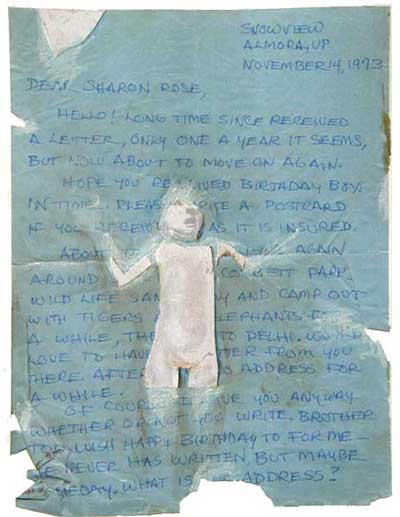 SNOWVIEW
ALMORA, UP
NOVEMBER 14,
DEAR SHARON ROSE,
HELLO! LONG TIME SINCE RECEIVED
A LETTER, ONLY ONE A YEAR IT SEEMS,
BUT NOW ABOUT TO MOVE ON AGAIN.
HOPE YOU RECEIVED BIRTHDAY BOX
IN TIME. PLEASE WRITE A POSTCARD
IF YOU AS IT IS INSURED.
ABOUT AGAIN
AROUND CORBETT PARK
WILD LIFE AND CAMP OUT
WITH TIGERS ELEPHANTS
A WHILE, TO DELHI. WOULD
LOVE TO HAVE FROM YOU
THERE. AFTER ADDRESS FOR
A WHILE.
OF COURSE I LOVE YOU ANYWAY
WHETHER OR NOT YOU WRITE. BROTHER
TOO. WISH HAPPY BIRTHDAY TO FOR ME—
HE NEVER HAS WRITTEN, BUT MAYBE
SOMEDAY. WHAT IS ADDRESS?